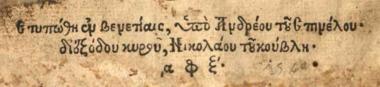 Ετυπώθη ἐν Βενετίαις, ὑπὸ Ἀνδρέου τοῦ Σπινέλου·
διεξόδου κυροῦ, Νικολάου τοῦ κούβλη·
α φ ξ´· 1560